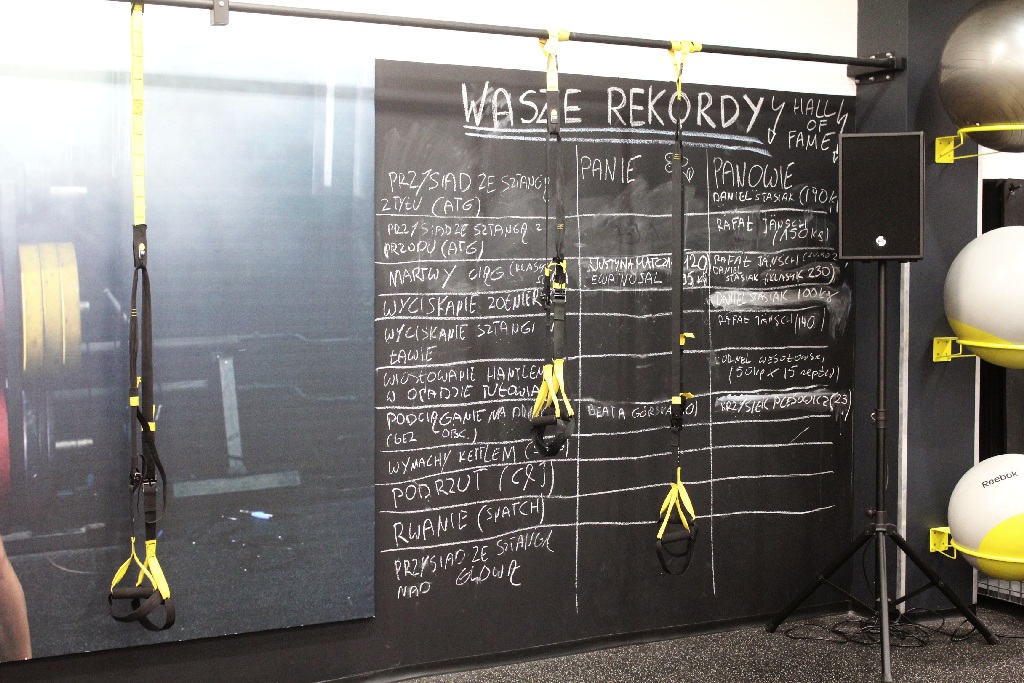 WASZE REKORDY
HALL
OF
FAME
PANIE
PANOWIE
PRZYSIAD ZE SZTANGĄ
Z TYŁU (ATG)
DANIEL STASIAK (190kg
PRZYSIAD ZE SZTANGĄ Z
PRZODU (ATG)
RAFAŁ JÄNSCH
/150kg)
MARTWY CIĄG (KLASYK
JUSTYNA MATCZAK 120
EWA NOSAL 95kg
RAFAŁ JÄNSCH
DANIEL
STASIAK (KLASYK 230)
WYCISKANIE ŻOŁNIER
DANIEL STASIAK 100kg
WYCISKANIE SZTANGI
ŁAWIE
RAFAŁ JÄNSCH (140)
WIOSŁOWANIE HANTLEM
W OPADZIE TUŁOWIA
(50kg x 15
PODCIĄGANIE NA
(BEZ OBC.)
BEATA GÓRSKA
KRZYSIEK (23
WYMACHY KETTLEM
PODRZUT (C&J)
RWANIE (SNATCH)
PRZYSIAD ZE SZTANGĄ
NAD GŁOWĄ
Reebok